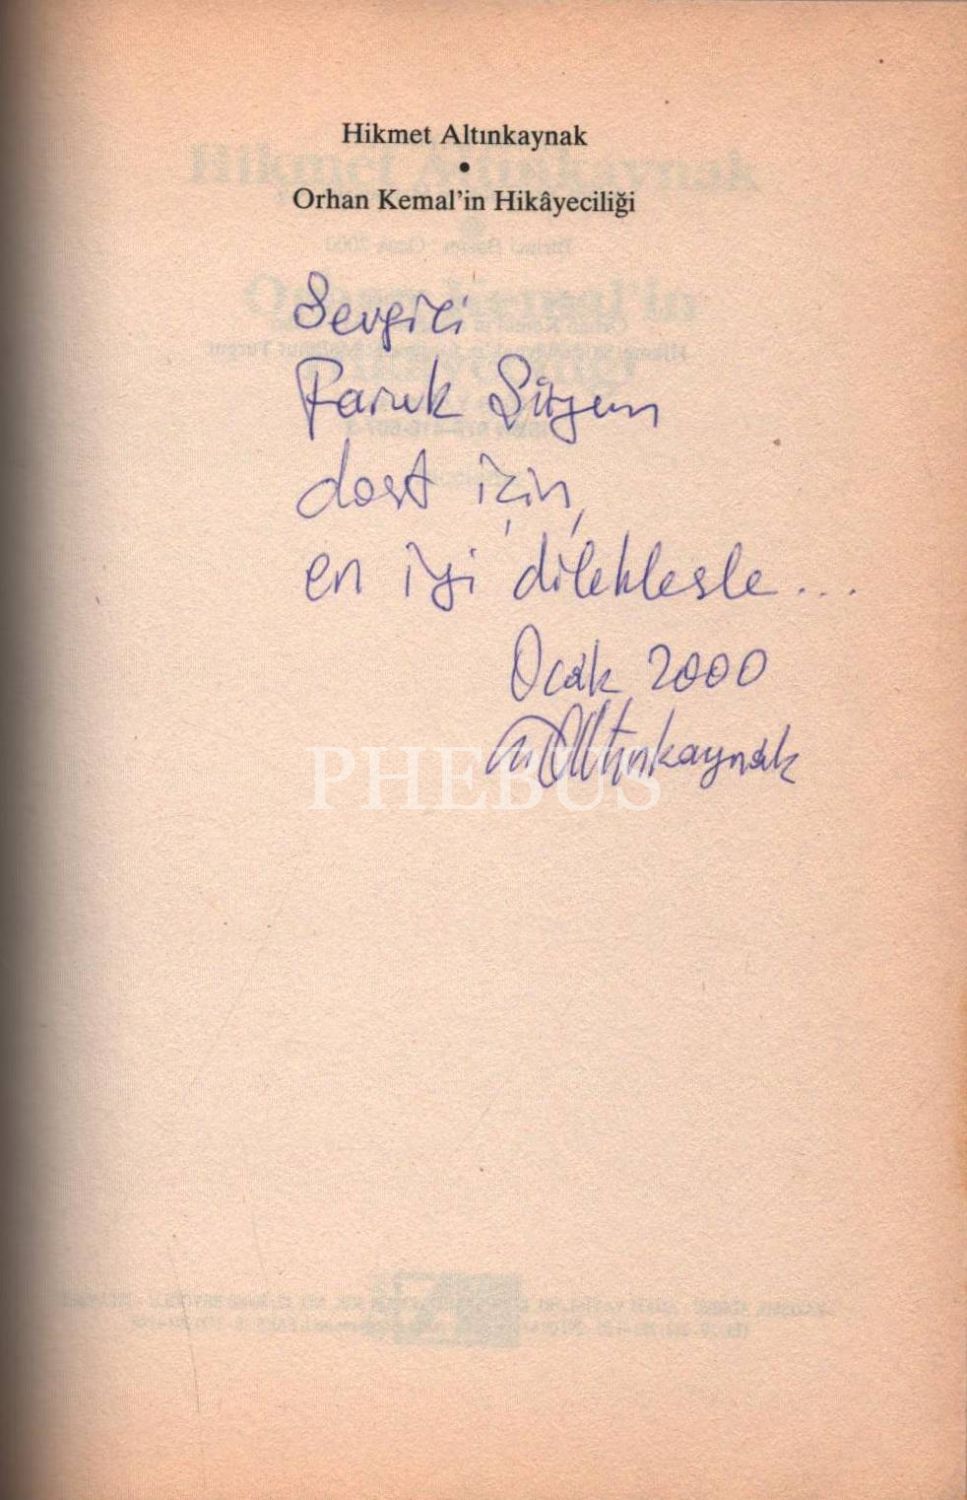 Hikmet Altınkaynak
•
Orhan Kemal'in Hikâyeciliği
Sevgili
Faruk Şüyun
dost için,
en iyi dileklerle...
Ocak 2000
Altınkaynak
PHEBUS